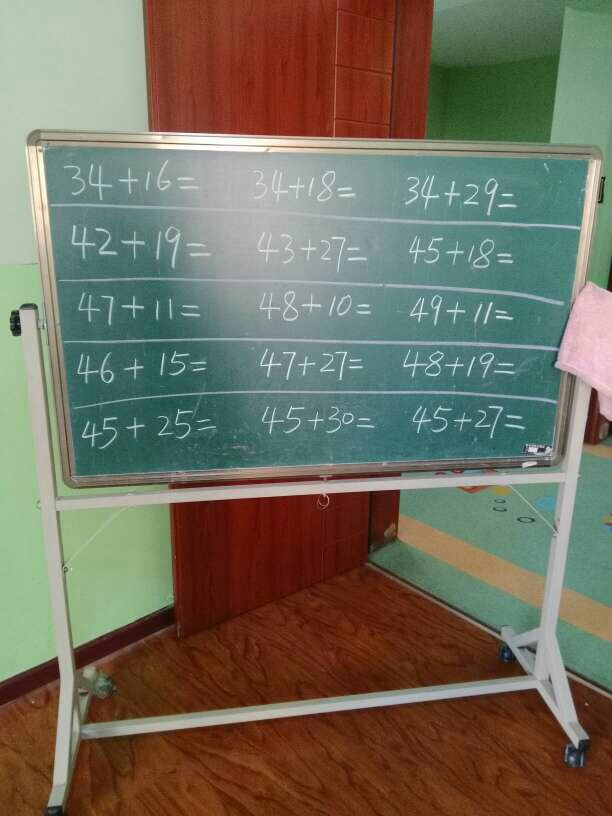 34+16= 34+18= 34+29=
42+19= 43+27= 45+18=
47+11= 48+10= 49+11=
46+15= 47+27= 48+19=
45+25= 45+30= 45+27=